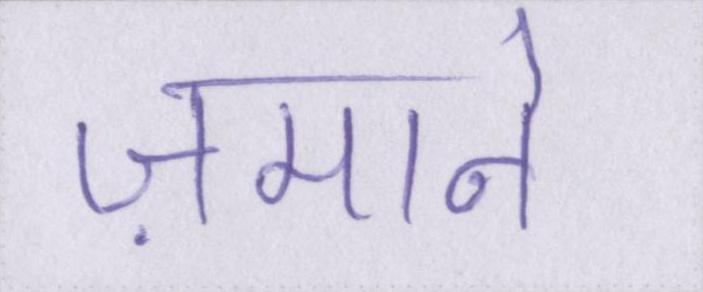 ज़माने